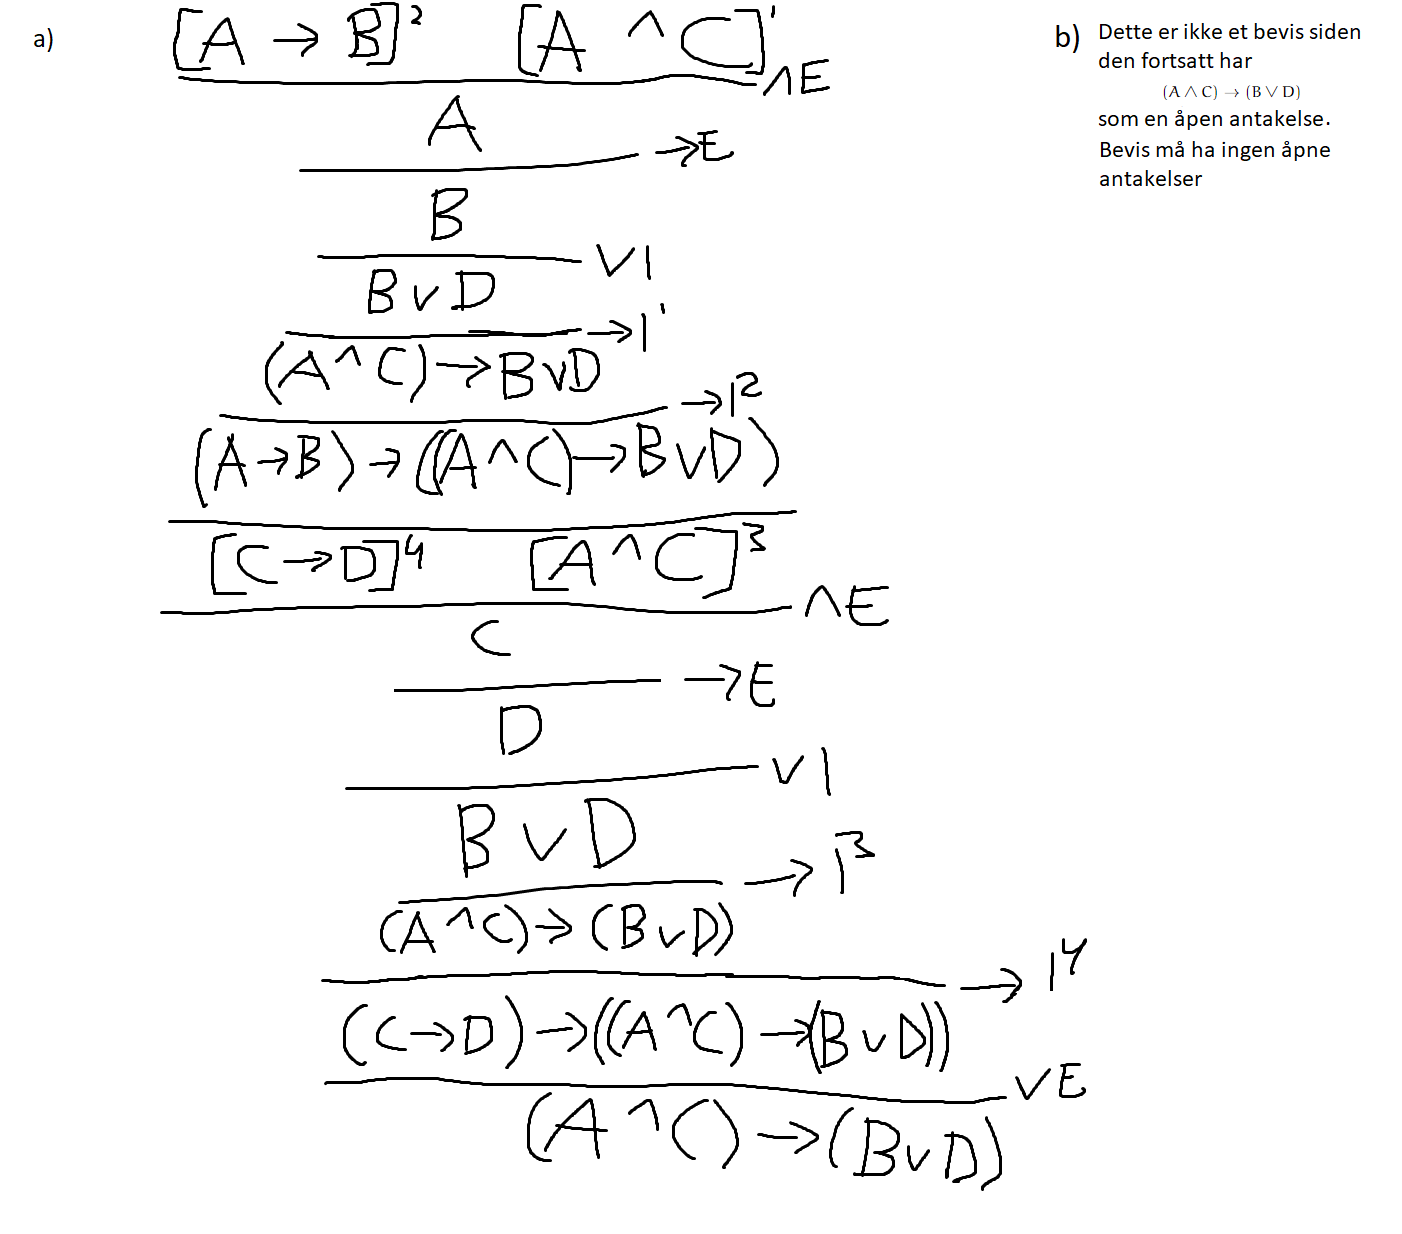 a)
[A → B]² [A ∧ C]¹
∧E
A
→E
B
∨I
B ∨ D
→I¹
(A ∧ C) → B∨D
→I²
(A→B) → ((A ∧ C) → B∨D)
[C→D]⁴ [A ∧ C]³
∧E
C
→E
D
∨I
B ∨ D
→I³
(A ∧ C) → (B∨D)
→I⁴
(C→D) → ((A ∧ C) → (B∨D))
∨E
(A ∧ C) → (B∨D)
b) Dette er ikke et bevis siden
den fortsatt har
(A ∧ C) → (B ∨ D)
som en åpen antakelse.
Bevis må ha ingen åpne
antakelser